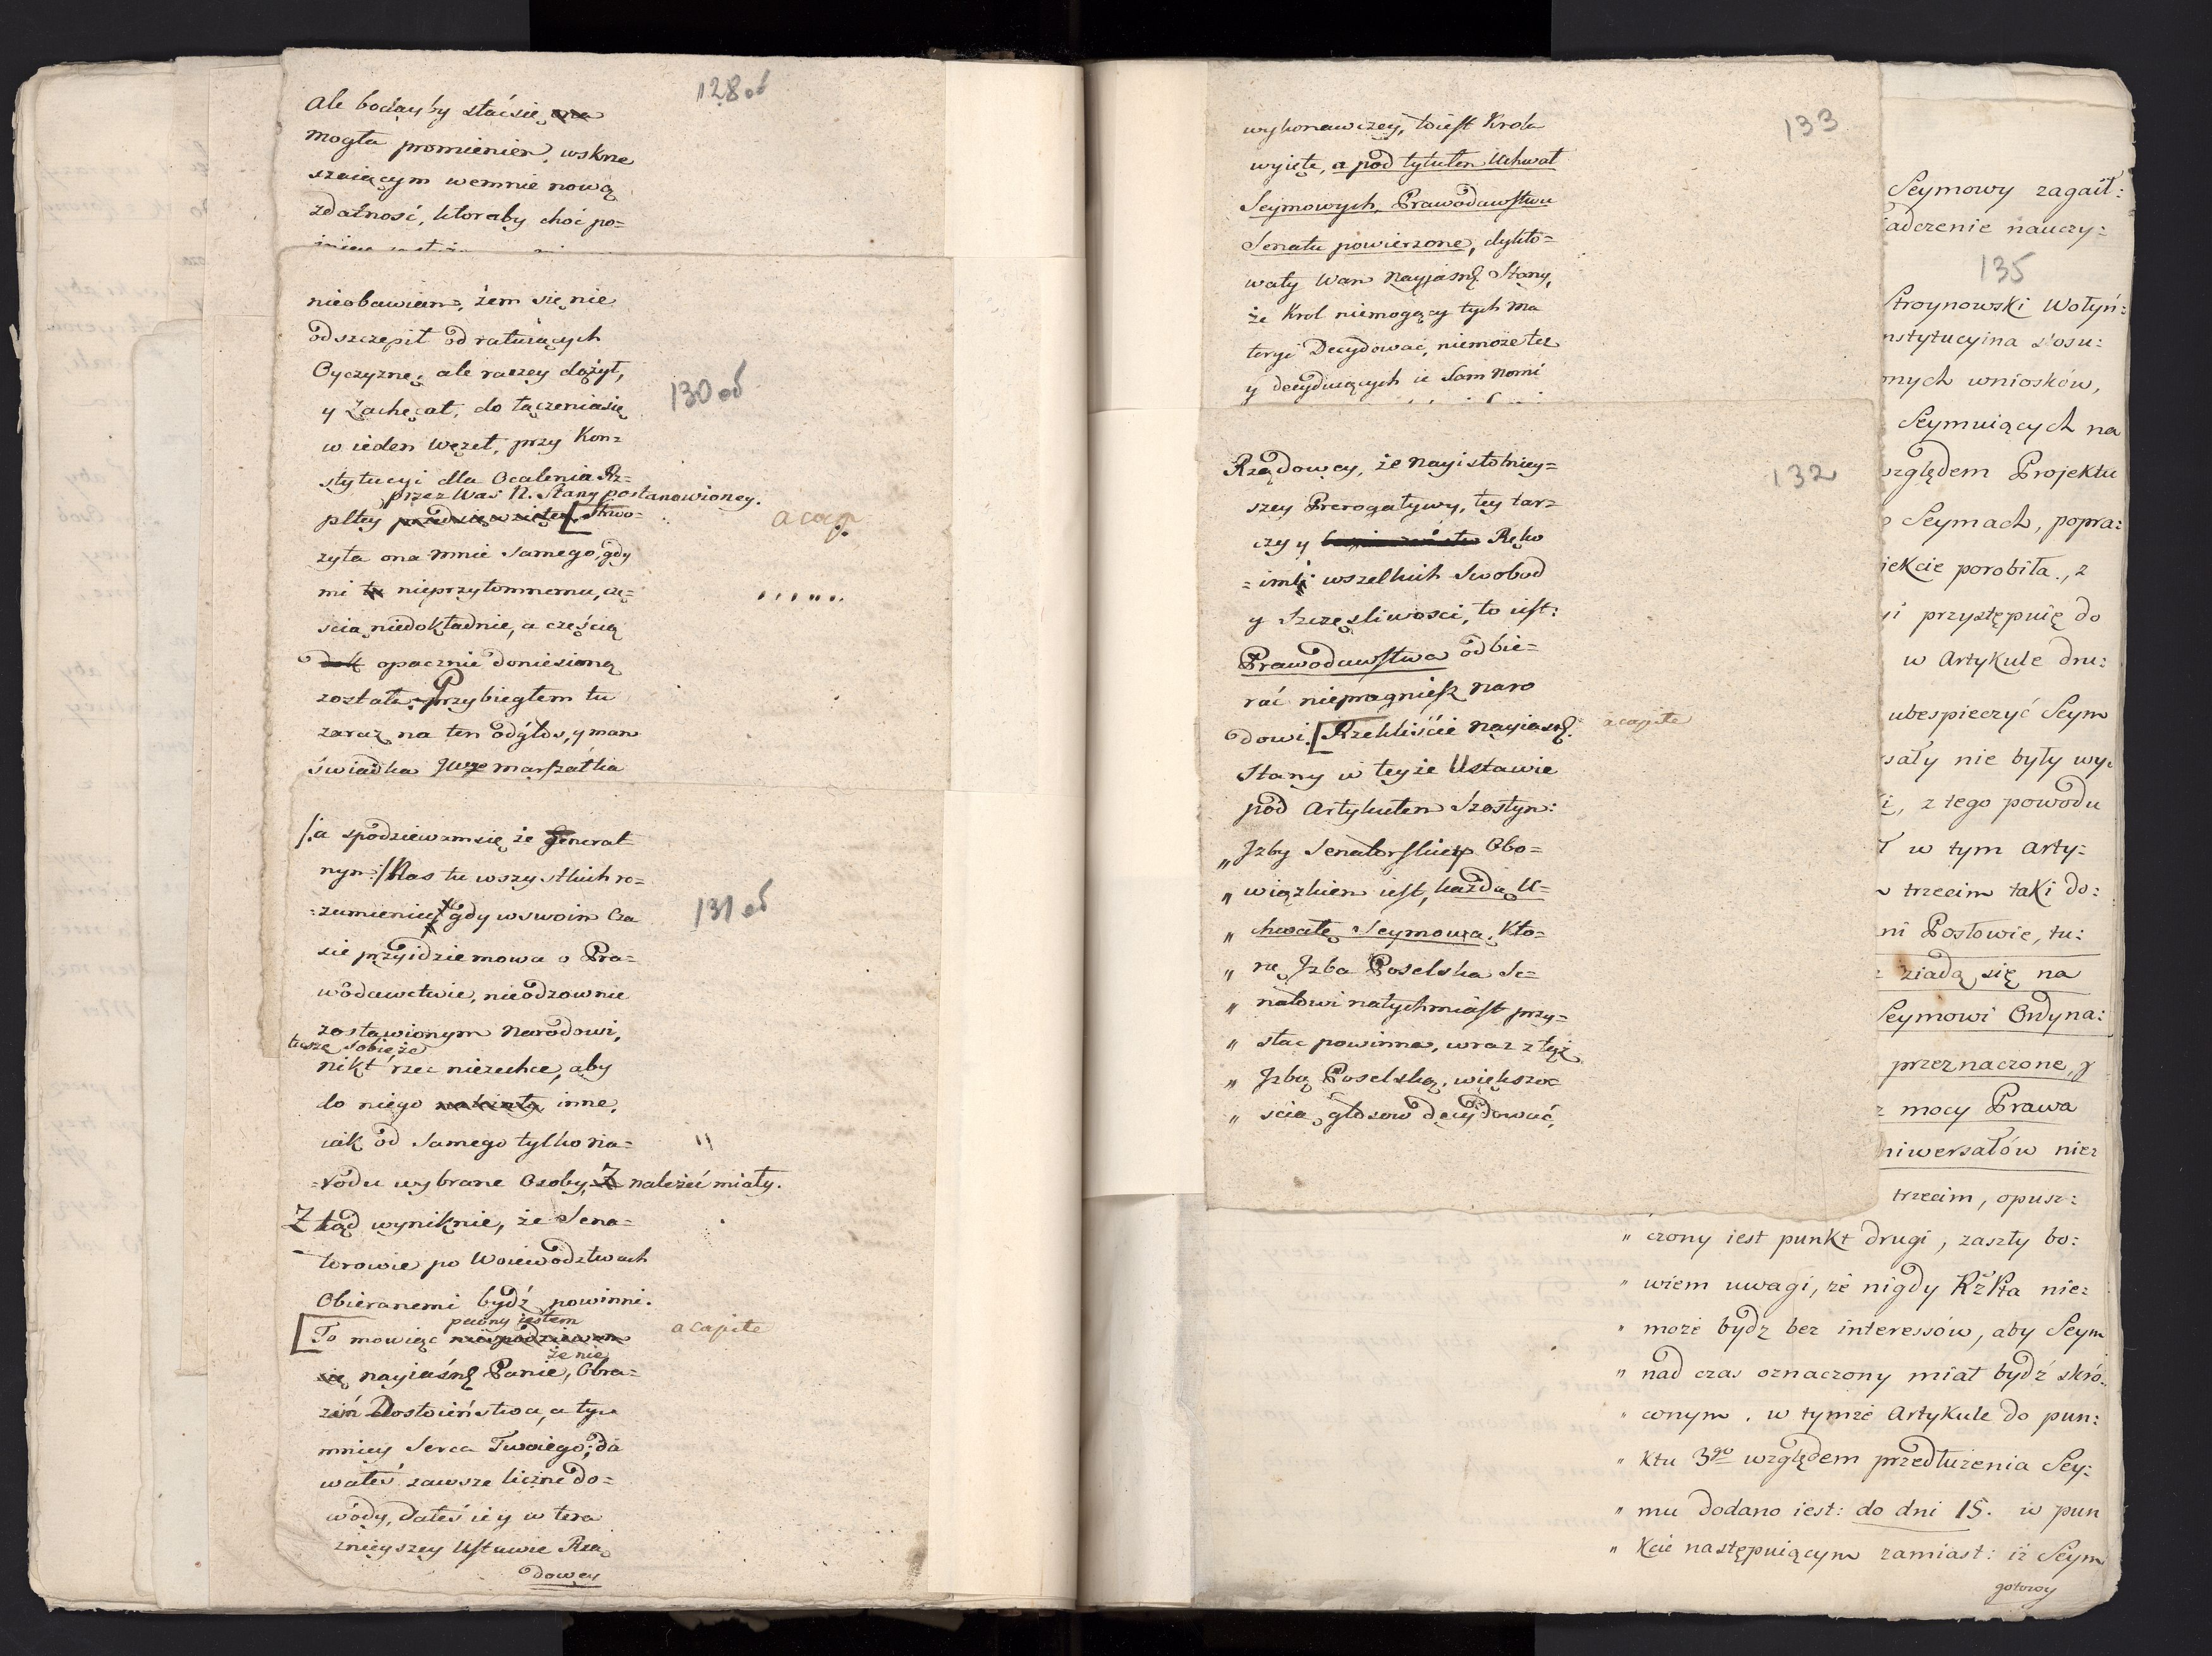 128 об
ale bodayby stać się
mogła promieniem, wskrze
szaiącym wemnie nową
zdatność, ktoraby choć po=
nieobawiam, żem się nie
odszczepił od ratuiących
Oyczyznę, ale raczey dążył,
130 об
y zachęcał, do łączenia się
w ieden węzeł, przy Kon=
stytucyi dla Ocalenia Rz=
przez Was N. Stany postanowioney.
pltey [Stwo=
a cap.
rzyła ona mnie samego, gdy
mi nieprzytomnemu, czę=
ścią niedokładnie, a częścią
opacznie doniesioną
została. Przybiegłem tu
zaraz na ten odgłos, y mam
świadka Jwgo marszałka
/:a spodziewam się że General
nym:/ Nas tu wszystkich ro=
=zumieniu gdy w swoim Cza
131 об
sie przyidzie mowa o Pra=
wodawctwie, nieodzownie
zostawionym Narodowi,
tuszę sobie że
nikt rzec niezechce, aby
do niego inne,
iak od Samego tylko na=
=rodu wybrane Osoby, należeć miały.
Ztąd wyniknie, że Sena=
torowie po Woiewodztwach
Obieranemi bydź powinni.
pewny iestem
[To mowiąc
a capite
że nie
nayiaśnſ Panie, Obra=
żam Dostoieństwa, a tym
mniey Serca Twoiego; da
wałeś zawsze liczne do=
wody, dałeś iey w tera
znieyszey Ustawie Rzą
dowey
133
wykonawczey, to iest Krola
wyięte, a pod tytułem Uchwał
Seymowych, Prawodawstwu
Senatu powierzone, dykto=
wały Wam Nayjasnſ Stany,
że Krol niemogący tych ma
teryi Decydować, niemoże też
y decyduiących ie Sam nomi
Rządowey, że nayistotniey=
132
szey Prerogatywy, tey tar=
czy y Ręko
=imi wszelkich Swobod
y Szczęśliwości, to iest:
Prawodawstwa odbie=
rać niepragniesz naro
dowi. [Rzekliście Nayiasnſ.
a capite
Stany w teyże Ustawie
pod Artykułem Szostym:
„ Jzby Senatorskiey Obo=
„ wiązkiem iest, każdą U=
„ chwałę Seymową, Kto=
„ rę Jzba Poselska Se=
„ natowi natychmiast przy=
„ słac powinna, wraz z tęż
„ Jzbą Poselską, większo=
„ scią głosow decydować,
Seymowy zagaił:
adczenie nauczy:
135
Stroynowski Wołyń:
nstytucyina s'osu:
mych wniosków,
Seymuiących na
względem Projektu
o Seymach, popra:
iekcie porobiła, z
yi przystępuię do
w Artykule dru:
ubespieczyć Seym
sały nie były wy:
i, z tego powodu
T w tym Arty:
trzecim taki do:
ni Posłowie, tu:
ziadą się na
Seymowi Ordyna:
przeznaczone, y
z mocy Prawa
niwersałów nie:
trzecim, opusz:
„ czony iest punkt drugi, zaszły bo:
„ wiem uwagi, że nigdy RżPta nie:
„ może bydz bez interessów, aby Seym
„ nad czas oznaczony miał bydź skró:
„ conym. w tymże Artykule do pun:
„ ktu 3go względem przedłużenia Sey:
„ mu dodano iest: do dni 15. w pun
„ kcie następuiącym zamiast: iż Seym
gotowy